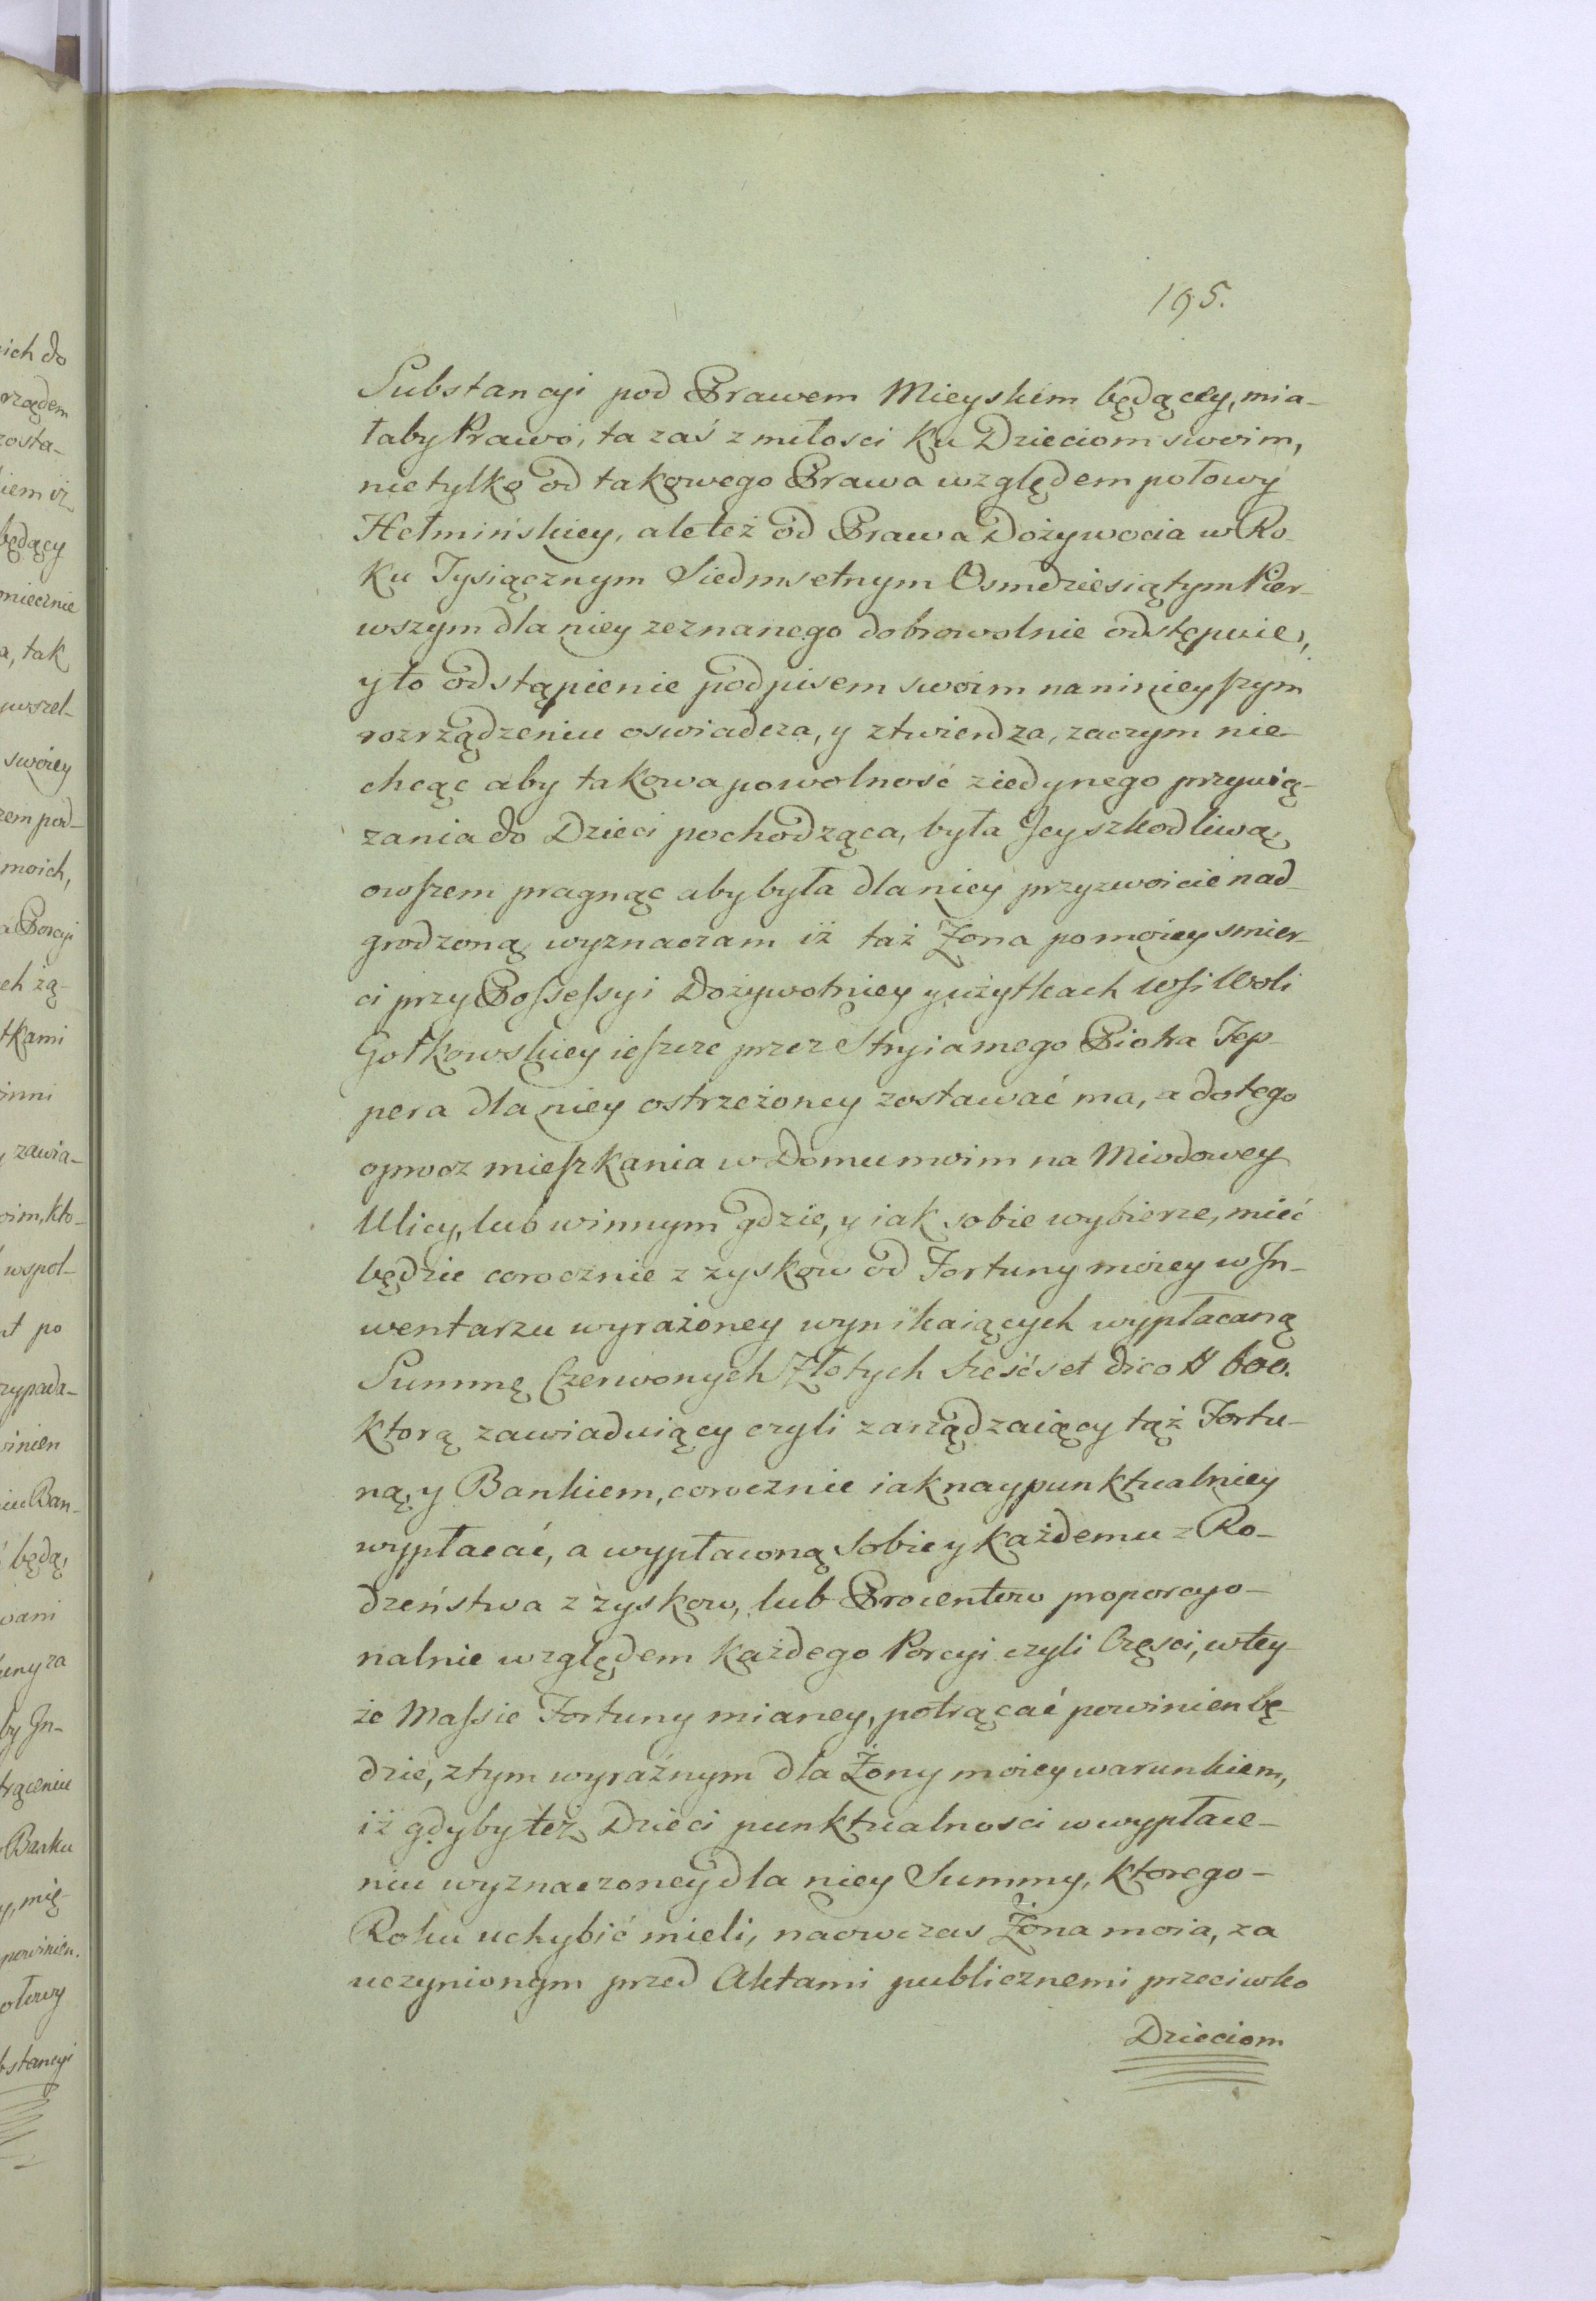 195.
Substancyi pod Prawem Mieyskim będącey, mia-
łaby Prawo, ta zaś z miłosci ku Dzieciom swoim,
nie tylko od takowego Prawa względem połowy
Hełmińskiey, ale też od Prawa Dożywocia w Ro-
ku Tysiącznym Siedmsetnym Osmdziesiątym Pier-
wszym dla niey zeznanego dobrowolnie odstępuie,
y to odstąpienie podpisem swoim na ninieyszym
rozrządzeniu oswiadcza, y ztwierdza, zaczym nie-
chcąc aby takowa powolność z iedynego przywią-
zania do Dzieci pochodząca, była Jey szkodliwą,
owszem pragnąc aby była dla niey przyzwoicie nad-
grodzoną, wyznaczam iż taż Żona po moiey smier-
ci przy Possessyi Dożywotniey y użytkach Wsi Woli
Gołkowskiey ieszcze przez Stryia mego Piotra Tep-
pera dla niey ostrzeżoney zostawać ma, a do tego
oprocz mieszkania w Domu moim na Miodowey
Ulicy, lub w innym gdzie, y iak sobie wybierze, mieć
będzie corocznie z zyskow od Fortuny moiey w In-
wentarzu wyrażoney wynikaiących wypłacaną
Summę Czerwonych Złotych sześćset dico # 600.
ktorą zawiaduiący czyli zarządzaiący tąż Fortu-
ną, y Bankiem, corocznie iak naypunktualniey
wypłacać, a wypłaconą sobie y każdemu z Ro-
dzeństwa z zyskow, lub Procentow proporcyo-
nalnie względem każdego Porcyi czyli Częsci, w tey-
że Massie Fortuny mianey, potrącać powinien bę-
dzie, z tym wyraźnym dla Żony moiey warunkiem,
iż gdyby też Dzieci punktualnosci w wypłace-
niu wyznaczoney dla niey Summy, ktorego-
Roku uchybić mieli, naowczas Żona moia, za
uczynionym przed Aktami publicznemi przeciwko
Dzieciom